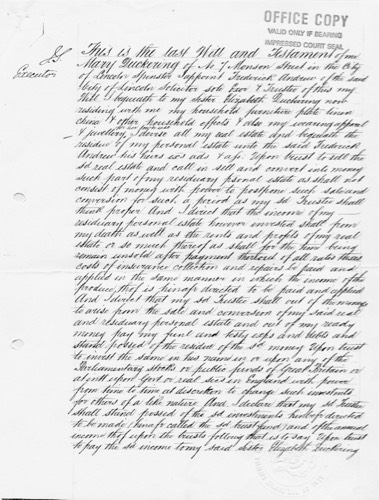 OFFICE COPY
VALID ONLY IF BEARING
IMPRESSED COURT SEAL
This is the last Will and Testament of me
Mary Duckering of No 7 Monson Street in the City
Executor
of Lincoln Spinster I appoint Frederick Andrew of the said
City of Lincoln Solicitor sole Exor & Trustee of this my
Will I bequeath to my sister Elizabeth Duckering now
residing with me my household furniture plate linen
china & other household effects & also my wearing apparel
& jewellery I devise all my real estate and bequeath the
residue of my personal estate unto the said Frederick
Andrew his heirs exs ads & as. Upon trust to sell the
sd real estate and call in sell and convert into money
such part of my residuary personal estate as shall not
consist of money with power to postpone such sale and
conversion for such a period as my sd Trustee shall
think proper And I direct that the income of my
residuary personal estate however invested shall from
my death as well as the rents and profits of my real
estate or so much thereof as shall for the time being
remain unsold after payment thereout of all rates taxes
costs of insurance collection and repairs be paid and
applied in the same manner in which the income of the
produce thof is hinafr directed to be paid and applied
And I direct that my sd Trustee shall out of the moneys
to arise from the sale and conversion of my said real
and residuary personal estate and out of my ready
money pay my funl and testy exps and debts and
stand possed of the residue of the sd money Upon trust
to invest the same in his name in or upon any of the
Parliamentary stocks or public funds of Great Britain or
at intt upon govt or real secs in England with power
from time to time at discretion to change such investmts
for others of a like nature And I declare that my sd Trustee
shall stand possed of the sd investments hinbefe directed
to be made, hinafr called the sd trust fund, and of the annual
income thof upon the trusts follwng that is to say Upon trust
to pay the sd income to my said sister Elizabeth Duckering